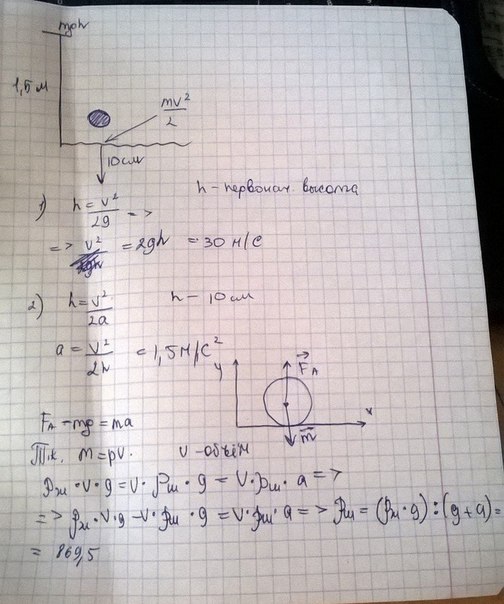 mgh
1,5 м
mv²/2
10см
1) h = v²/2g =>
h - первонач. высота
=> v² = 2gh = 30 м/с
2) h = v²/2a
h - 10 см
a = v²/2h = 1,5 м/с²
y
F_A
x
m
F_A - mg = ma
Т.к. m = ρV. V - объём
ρж · V · g = V · ρш · g = V · ρш · a =>
=> ρж · V · g - V · ρш · g = V · ρш · a => ρш = (ρж · g) : (g + a) =
= 869,5